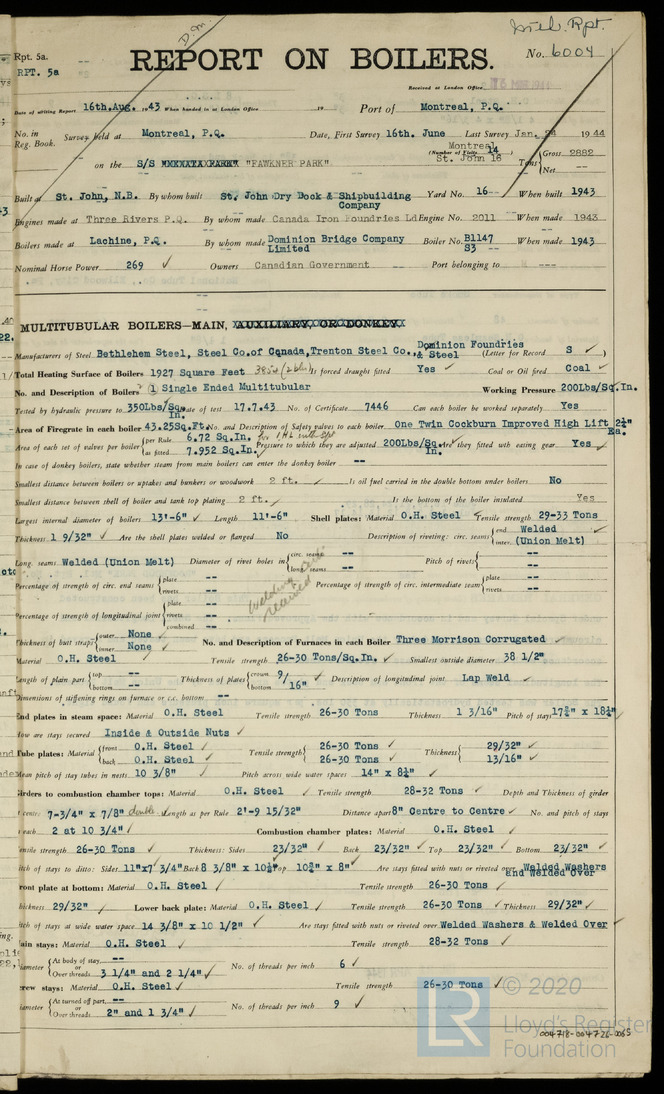 Wel. Rpt.
D.M.
Rpt. 5a.
RPT. 5a
REPORT ON BOILERS.
No. 6004
Received at London Office
Date of writing Report 16th.Aug. 1943 When handed in at London Office 19 Port of Montreal, P.Q.
No. in Reg. Book. Survey held at Montreal, P.Q. Date, First Survey 16th. June Last Survey Jan. 24 1944
Montreal 14
(Number of Visits
St. John 16
on the S/S "FAWKNER PARK" Tons { Gross 2882
Net --
Built at St. John, N.B. By whom built St. John Dry Dock & Shipbuilding Company Yard No. 16 When built 1943
Engines made at Three Rivers P.Q. By whom made Canada Iron Foundries Ld Engine No. 2011 When made 1943
Boilers made at Lachine, P.Q. By whom made Dominion Bridge Company Limited Boiler No. B1147 S3 When made 1943
Nominal Horse Power 269 ✓ Owners Canadian Government Port belonging to ---
MULTITUBULAR BOILERS—MAIN, AUXILIARY, OR DONKEY.
Manufacturers of Steel Bethlehem Steel, Steel Co.of Cqnada,Trenton Steel Co., Dominion Foundries & Steel (Letter for Record S ✓)
Total Heating Surface of Boilers 1927 Square Feet 3854 (2 bls) Is forced draught fitted Yes ✓ Coal or Oil fired Coal ✓
No. and Description of Boilers (1) Single Ended Multitubular Working Pressure 200Lbs/Sq.In.
Tested by hydraulic pressure to 350Lbs/Sq.In. Date of test 17.7.43 No. of Certificate 7446 Can each boiler be worked separately Yes
Area of Firegrate in each boiler 43.25Sq.Ft. No. and Description of Safety valves to each boiler One Twin Cockburn Improved High Lift 2¼" Ea.
Area of each set of valves per boiler { per Rule 6.72 Sq.In.
as fitted 7.952 Sq.In. Pressure to which they are adjusted 200Lbs/Sq.In. Are they fitted with easing gear Yes ✓
In case of donkey boilers, state whether steam from main boilers can enter the donkey boiler --
Smallest distance between boilers or uptakes and bunkers or woodwork 2 ft. ✓ Is oil fuel carried in the double bottom under boilers No
Smallest distance between shell of boiler and tank top plating 2 ft. ✓ Is the bottom of the boiler insulated Yes
Largest internal diameter of boilers 13'-6" ✓ Length 11'-6" Shell plates: Material O.H. Steel ✓ Tensile strength 29-33 Tons
Thickness 1 9/32" ✓ Are the shell plates welded or flanged No Description of riveting: circ. seams { end Welded ✓
inter. (Union Melt)
Long. seams Welded (Union Melt) Diameter of rivet holes in { circ. seams --
long. seams -- Pitch of rivets { --
--
Percentage of strength of circ. end seams { plate --
rivets -- Percentage of strength of circ. intermediate seam { plate --
rivets --
Percentage of strength of longitudinal joint { plate --
rivets --
combined --
Thickness of butt straps { outer None
inner None No. and Description of Furnaces in each Boiler Three Morrison Corrugated ✓
Material O.H. Steel ✓ Tensile strength 26-30 Tons/Sq.In. ✓ Smallest outside diameter 38 1/2"
Length of plain part { top --
bottom -- Thickness of plates { crown
bottom 9/16" ✓ Description of longitudinal joint Lap Weld ✓
Dimensions of stiffening rings on furnace or c.c. bottom --
End plates in steam space: Material O.H. Steel Tensile strength 26-30 Tons Thickness 1 3/16" Pitch of stays 17¾" x 18½"
How are stays secured Inside & Outside Nuts ✓
Tube plates: Material { front O.H. Steel ✓
back O.H. Steel ✓ Tensile strength { 26-30 Tons ✓
26-30 Tons ✓ Thickness { 29/32" ✓
13/16" ✓
Mean pitch of stay tubes in nests 10 3/8" ✓ Pitch across wide water spaces 14" x 8½" ✓
Girders to combustion chamber tops: Material O.H. Steel ✓ Tensile strength 28-32 Tons ✓ Depth and Thickness of girder
at centre 7-3/4" x 7/8" double ✓ Length as per Rule 2'-9 15/32" Distance apart 8" Centre to Centre ✓ No. and pitch of stays
in each 2 at 10 3/4" ✓ Combustion chamber plates: Material O.H. Steel ✓
Tensile strength 26-30 Tons ✓ Thickness: Sides 23/32" ✓ Back 23/32" ✓ Top 23/32" ✓ Bottom 23/32" ✓
Pitch of stays to ditto: Sides 11"x7 3/4" Back 8 3/8" x 10½" Top 10¾" x 8" ✓ Are stays fitted with nuts or riveted over Welded Washers and Welded Over
Front plate at bottom: Material O.H. Steel ✓ Tensile strength 26-30 Tons
Thickness 29/32" ✓ Lower back plate: Material O.H. Steel ✓ Tensile strength 26-30 Tons ✓ Thickness 29/32" ✓
Pitch of stays at wide water space 14 3/8" x 10 1/2" ✓ Are stays fitted with nuts or riveted over Welded Washers & Welded Over ✓
Main stays: Material O.H. Steel ✓ Tensile strength 28-32 Tons ✓
Diameter { At body of stay, --
or
Over threads 3 1/4" and 2 1/4" ✓ No. of threads per inch 6 ✓
Screw stays: Material O.H. Steel ✓ Tensile strength 26-30 Tons ✓
Diameter { At turned off part, --
or
Over threads 2" and 1 3/4" ✓ No. of threads per inch 9 ✓
LR
© 2020
Lloyd's Register
Foundation
004718-004726-0065